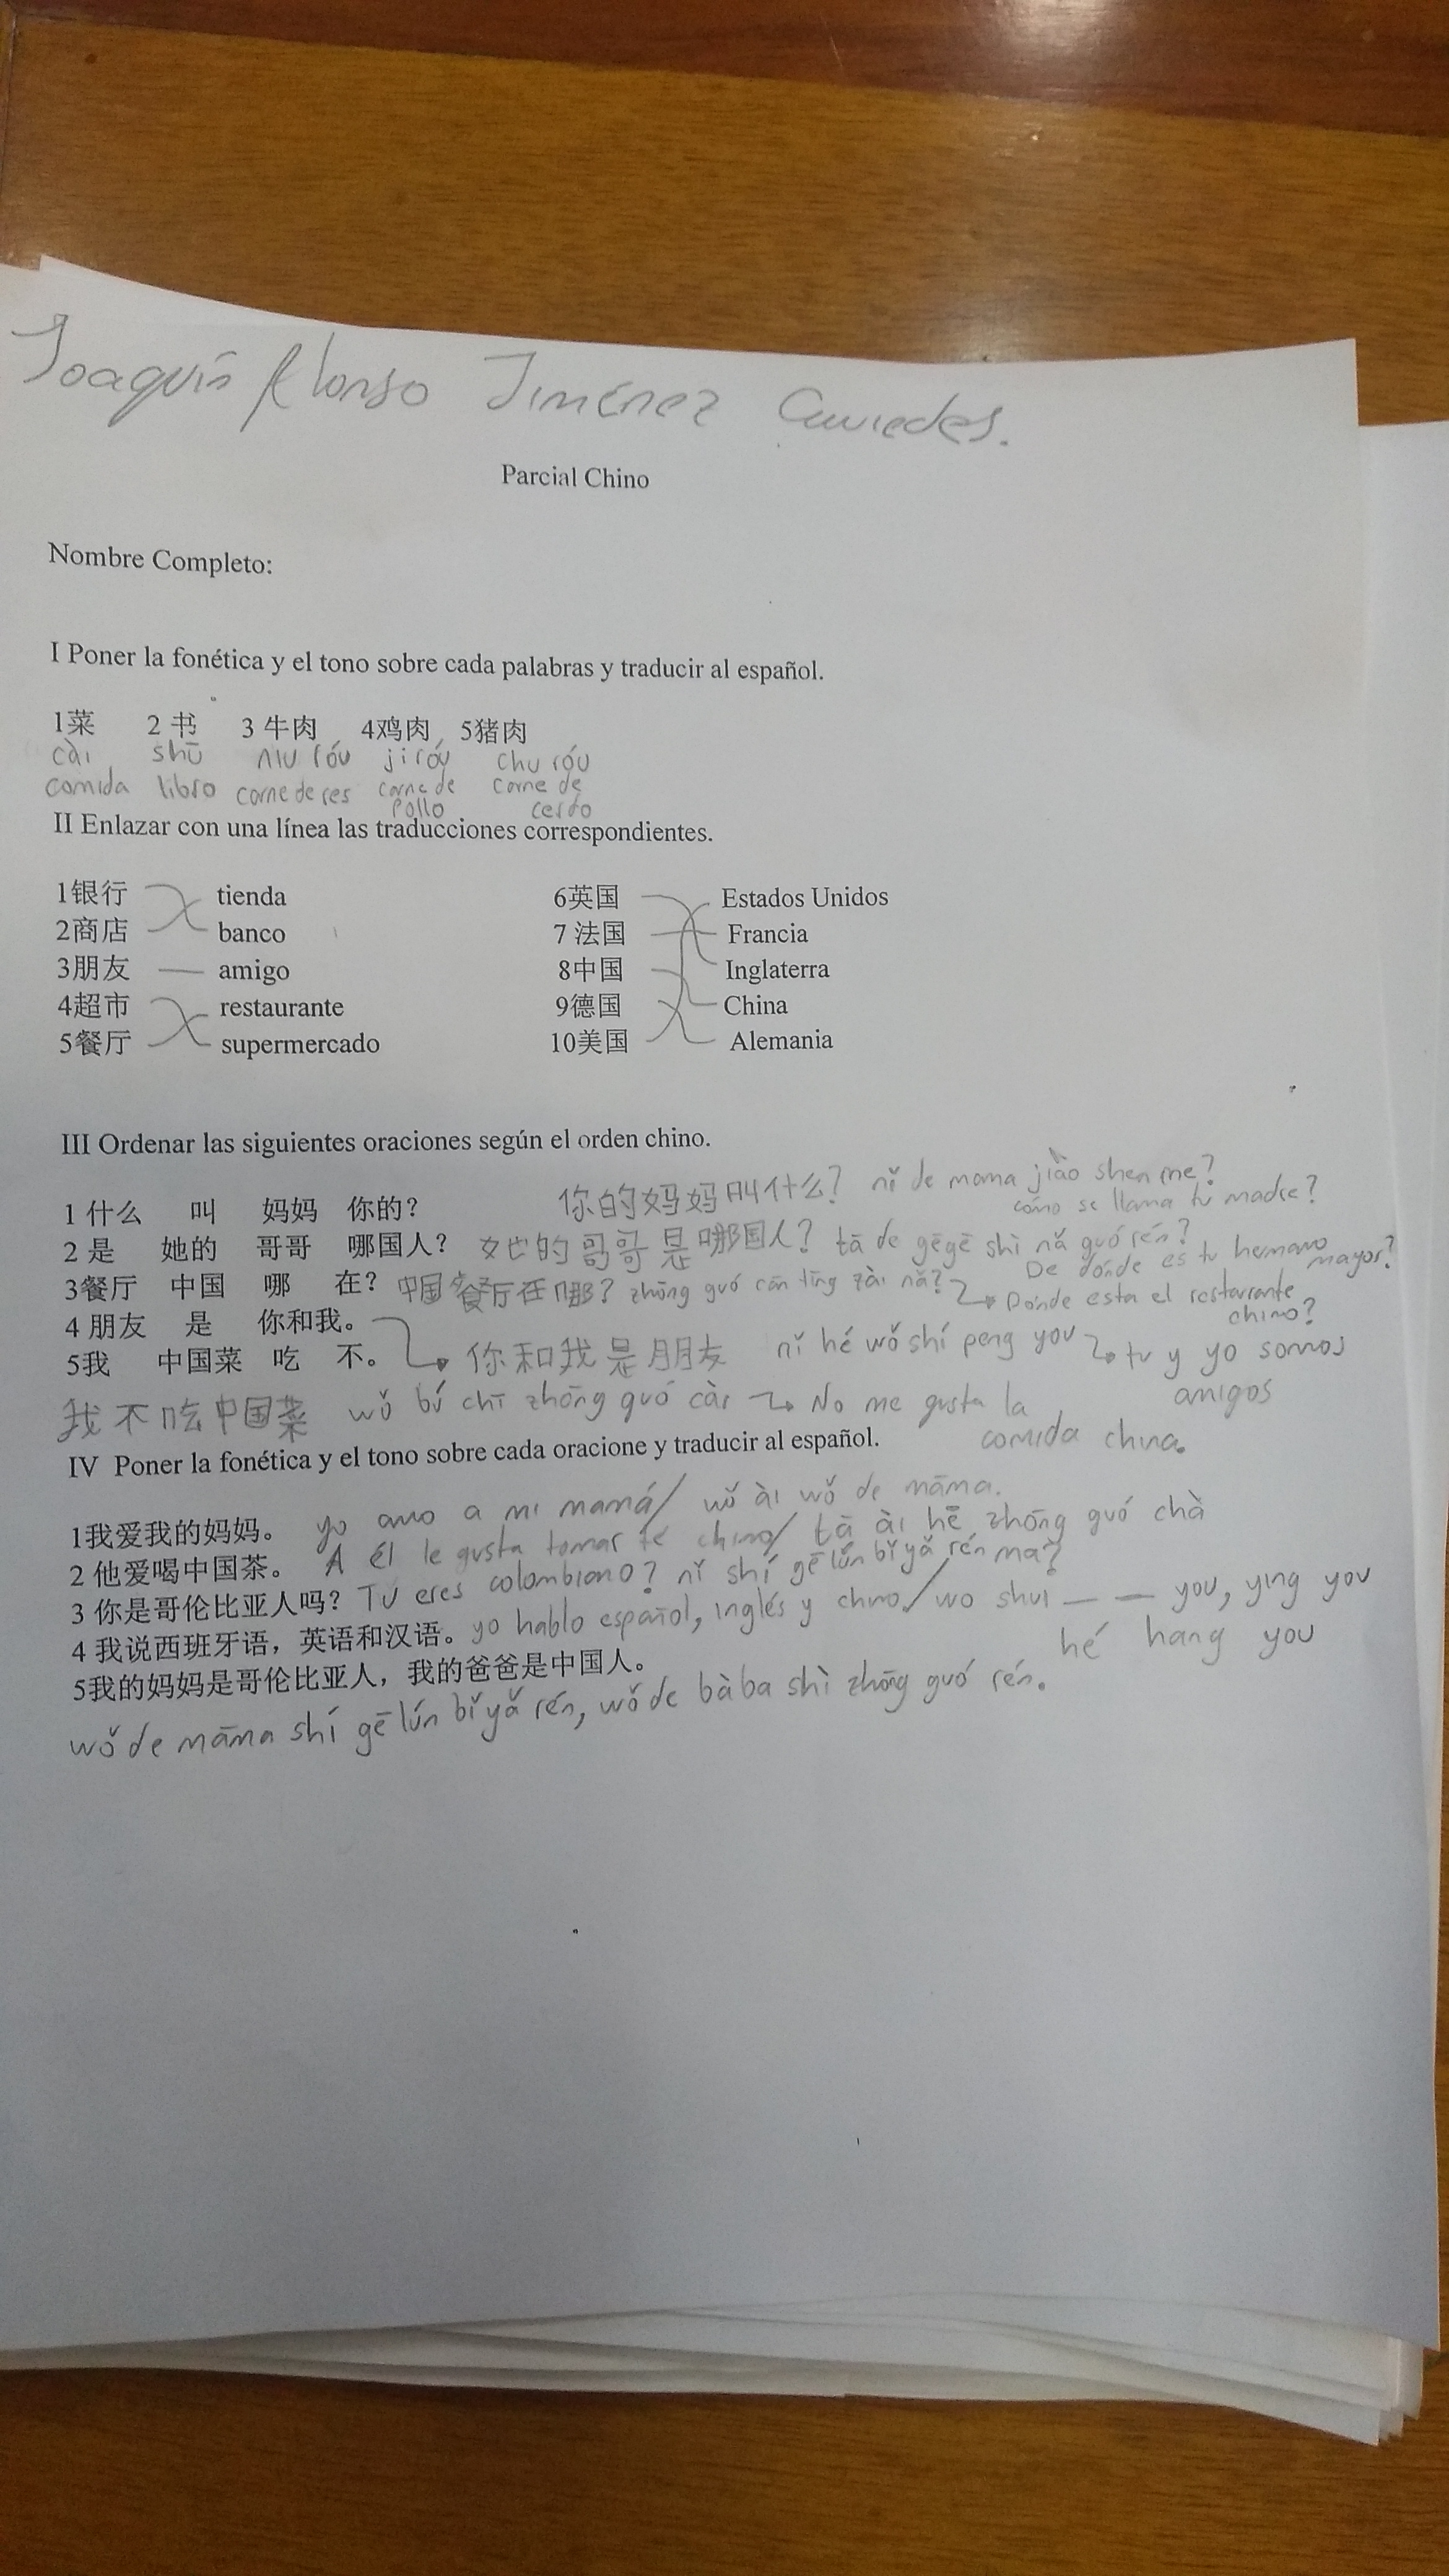 Joaquín Alonso Jiménez
Parcial Chino
Nombre Completo:
I Poner la fonética y el tono sobre cada palabras y traducir al español.
1菜 2 书 3 牛肉 4鸡肉 5猪肉
cài shū niu róu ji róu chu róu
comida libro carne de res carne de pollo carne de cerdo
II Enlazar con una línea las traducciones correspondientes.
1银行 tienda 6英国 Estados Unidos
2商店 banco 7 法国 Francia
3朋友 amigo 8中国 Inglaterra
4超市 restaurante 9德国 China
5餐厅 supermercado 10美国 Alemania
III Ordenar las siguientes oraciones según el orden chino.
1 什么 叫 妈妈 你的? 你的妈妈叫什么? nǐ de mama jiào shen me?
cómo se llama tu madre?
2 是 她的 哥哥 哪国人? 她的哥哥是哪国人? tā de gēgē shì nǎ guó rén?
De dónde es tu hermano mayor?
3餐厅 中国 哪 在? 中国餐厅在哪? zhōng guó cān tīng zài nǎ?
Dónde esta el restaurante chino?
4 朋友 是 你和我。
5我 中国菜 吃 不。 你和我是朋友 nǐ hé wǒ shí peng you tu y yo somos amigos
我不吃中国菜 wǒ bú chī zhōng guó cài No me gusta la comida china.
IV Poner la fonética y el tono sobre cada oracione y traducir al español.
1我爱我的妈妈。 yo amo a mi mamá/ wǒ ài wǒ de māma.
2 他爱喝中国茶。 A él le gusta tomar té chino/ tā ài hē zhōng guó chà
3 你是哥伦比亚人吗? Tu eres colombiano? nǐ shí gē lún bǐ yǎ rén ma?
4 我说西班牙语，英语和汉语。 yo hablo español, inglés y chino/ wo shui — — you, ying you
hé hang you
5我的妈妈是哥伦比亚人，我的爸爸是中国人。
wǒ de māma shí gē lún bǐ yǎ rén, wǒ de bàba shì zhōng guó rén.